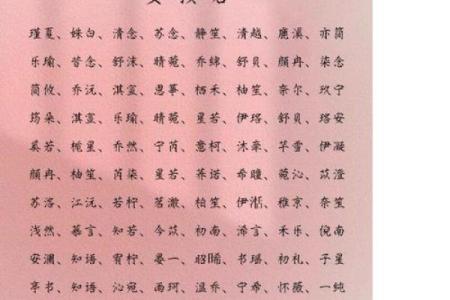 瑾夏、姝白、清念、苏念、静笙、清越、鹿溪、亦简
乐瑜、昔念、舒沫、晴菀、乔绵、舒贝、颜冉、柒念
简攸、乔沅、淇萱、思摹、栖禾、柚笙、奈尔、玖宁
筠朵、淇萱、乐瑜、晴菀、星若、伊珞、舒贝、珞安
奚若、栀星、乔然、宁芮、意柯、沐棠、芊雪、伊凝
颜冉、柚笙、芮柒、星若、荞诺、希瞳、菀沁、苡澄
苏洛、江沅、若柠、茗澈、柏笙、伊澌、稚京、奈笙
浅然、慕言、知若、今苡、初南、浠言、禾乐、倪南
安澜、知语、宥柠、晏一、昭晞、书瑶、初礼、子星
亭书、知语、沁宛、雨珂、温乔、宁希、怀薇、一纯